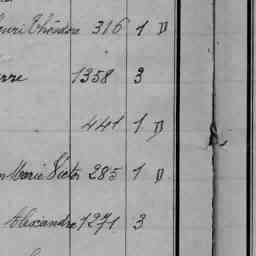 enri Théodore 316 1 D
erre 1358 3
441 1 D
n Marie Victor 285 1 D
Alexandre 1271 3